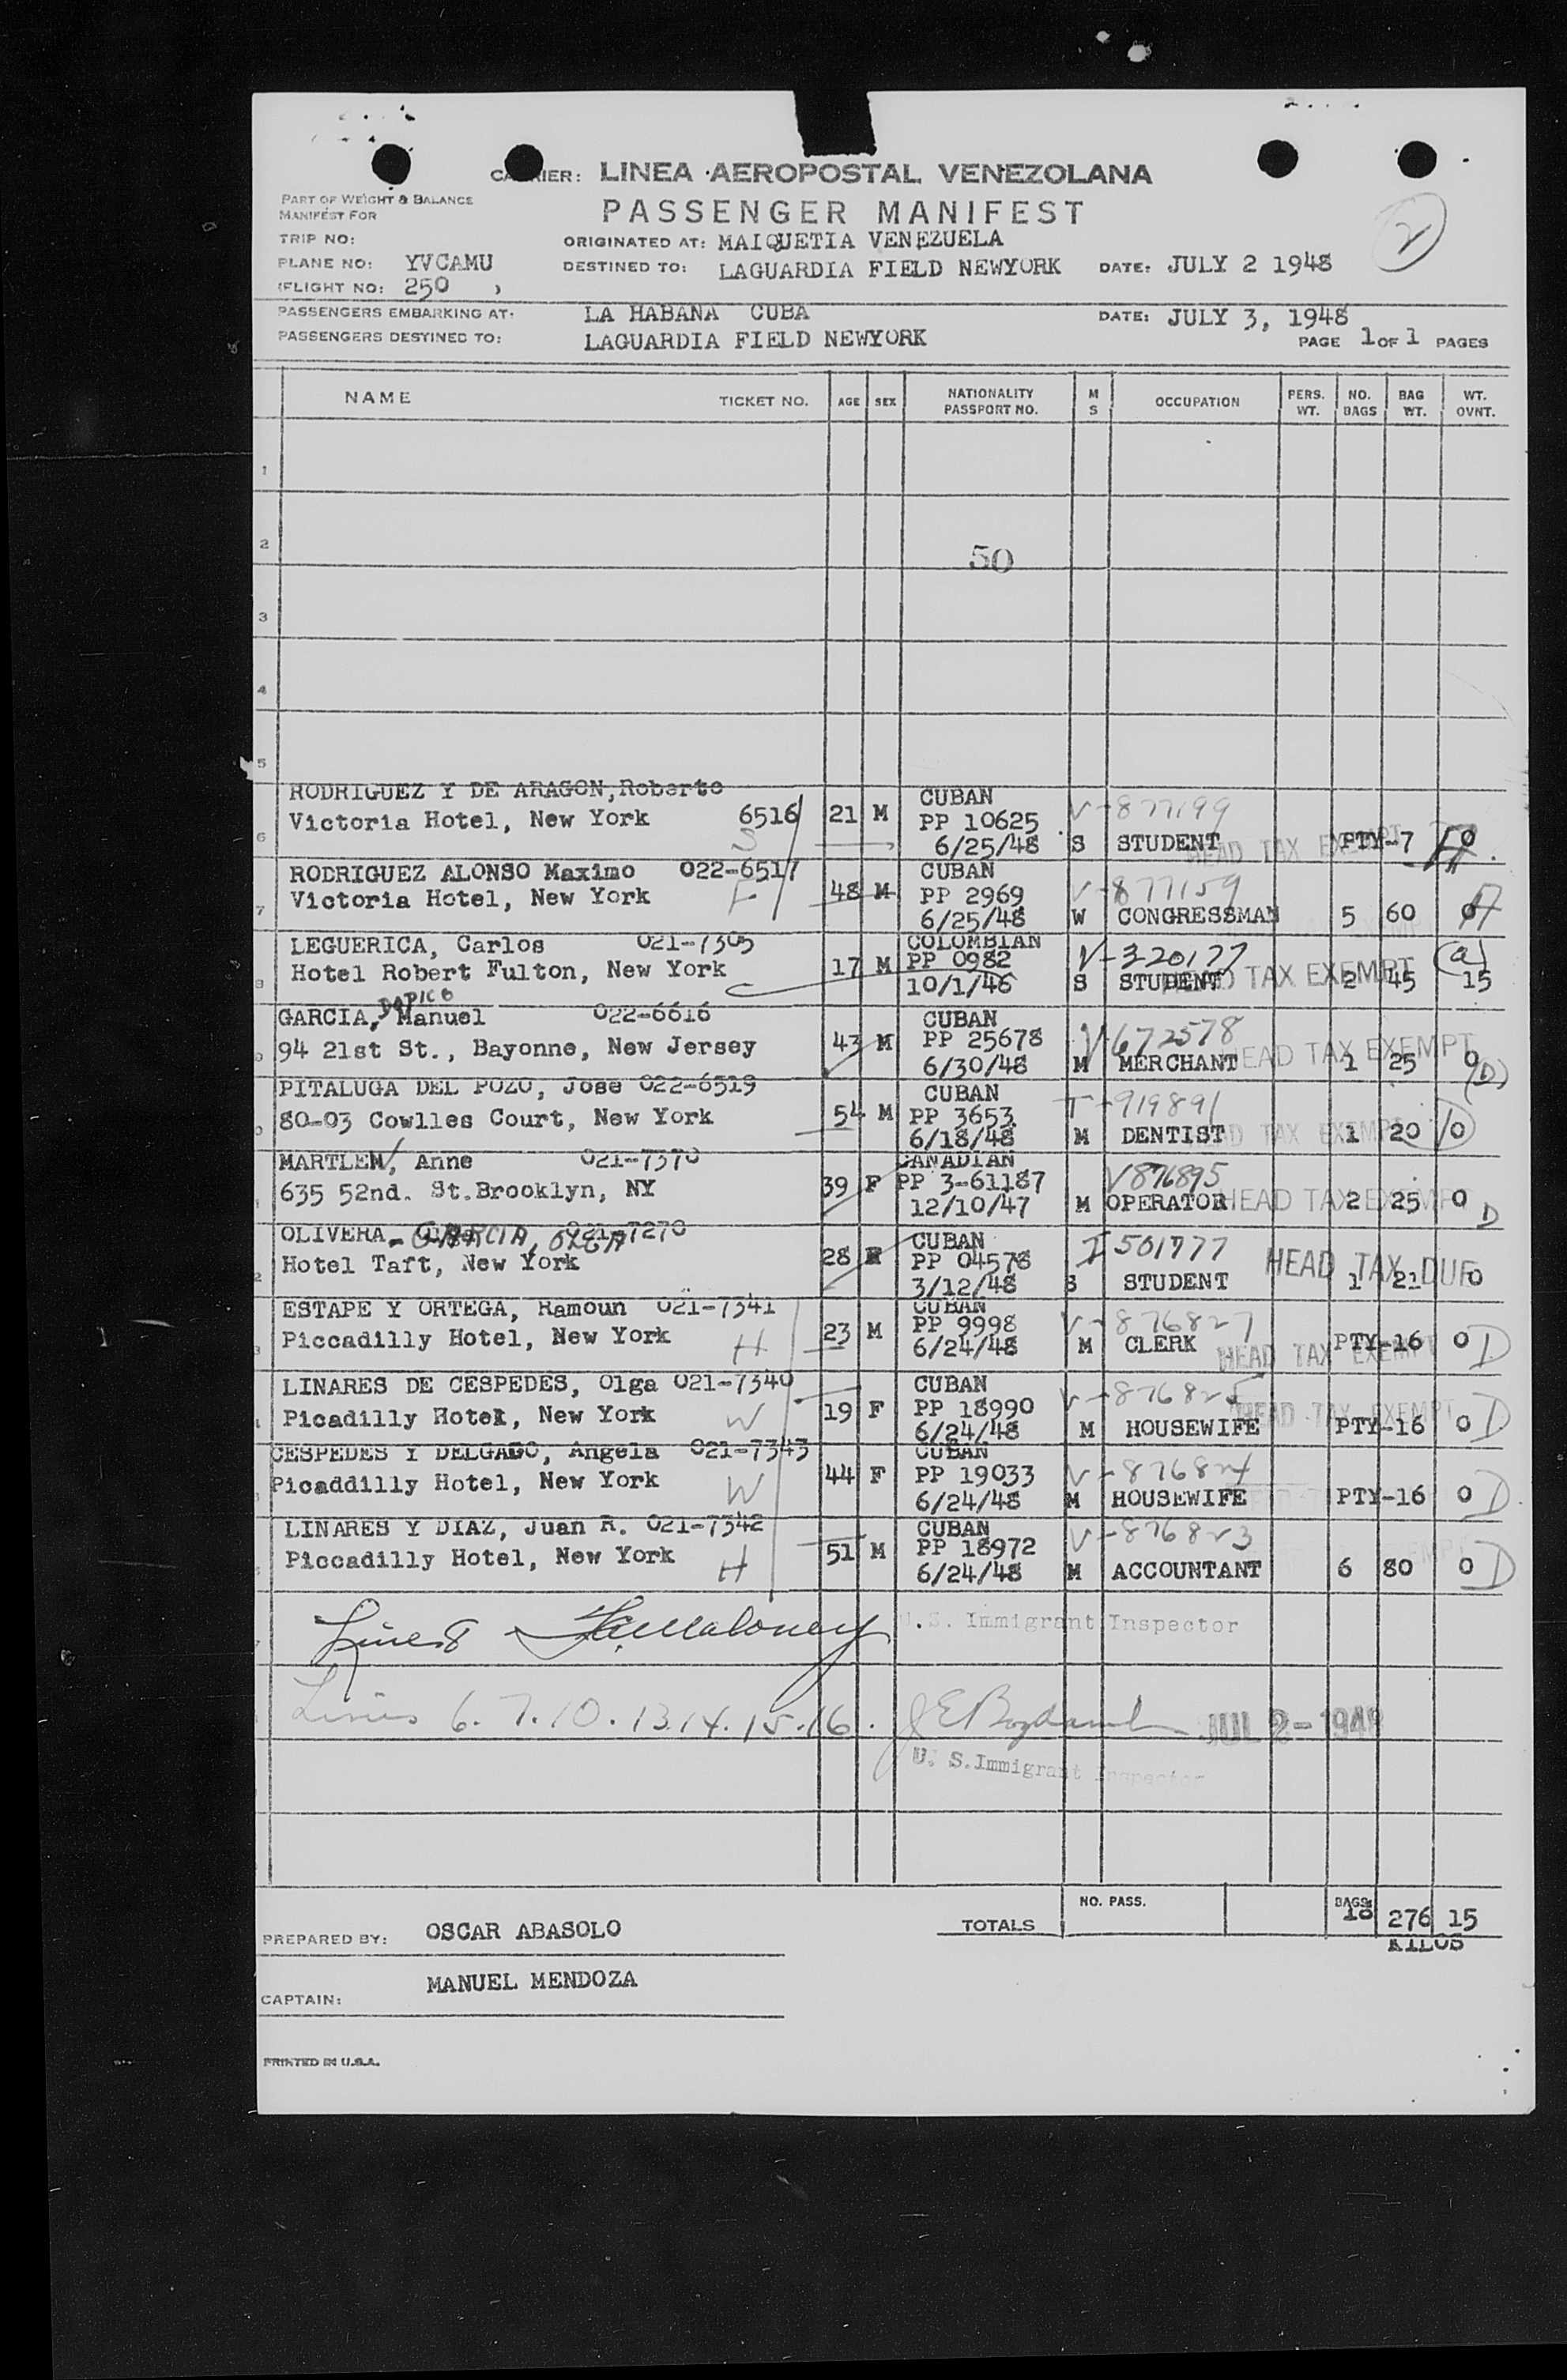 CARRIER: LINEA AEROPOSTAL VENEZOLANA
PART OF WEIGHT & BALANCE
MANIFEST FOR
PASSENGER MANIFEST
2
TRIP NO:
ORIGINATED AT: MAIQUETIA VENEZUELA
PLANE NO: YVCAMU
DESTINED TO: LAGUARDIA FIELD NEWYORK DATE: JULY 2 1948
(FLIGHT NO: 250 )
PASSENGERS EMBARKING AT: LA HABANA CUBA DATE: JULY 3, 1948
PASSENGERS DESTINED TO: LAGUARDIA FIELD NEWYORK PAGE 1 OF 1 PAGES
NAME TICKET NO. AGE SEX NATIONALITY PASSPORT NO. M S OCCUPATION PERS. WT. NO. BAGS BAG WT. WT. OVNT.
1
2
50
3
4
5
RODRIGUEZ Y DE ARAGON, Roberto CUBAN V-877199
Victoria Hotel, New York 6516 21 M PP 10625
6 S 6/25/48 S STUDENT HEAD TAX EXEMPT PTY-7 0
RODRIGUEZ ALONSO Maximo 022-6517 CUBAN V-877159
Victoria Hotel, New York F 48 M PP 2969
7 6/25/48 W CONGRESSMAN 5 60 0
LEGUERICA, Carlos 021-7305 COLOMBIAN V-320177 (a)
Hotel Robert Fulton, New York 17 M PP 0982
10/1/46 S STUDENT HEAD TAX EXEMPT 2 45 15
DOPICO
GARCIA, Manuel 022-6616 CUBAN V-672578
94 21st St., Bayonne, New Jersey 43 M PP 25678
6/30/48 M MERCHANT HEAD TAX EXEMPT 1 25 0 (D)
PITALUGA DEL POZO, Jose 022-6519 CUBAN T-919891
80-03 Cowlles Court, New York 54 M PP 3653
6/18/48 M DENTIST HEAD TAX EXEMPT 1 20 0 D
MARTLEN, Anne 021-7370 CANADIAN V876895
635 52nd. St.Brooklyn, NY 39 F PP 3-61187
12/10/47 M OPERATOR HEAD TAX EXEMPT 2 25 0 D
OLIVERA - GARCIA, OLGA 021-7270 CUBAN I 501777
Hotel Taft, New York 28 PP 04578
3/12/48 S STUDENT HEAD TAX DUE 1 21 0
ESTAPE Y ORTEGA, Ramoun 021-7341 CUBAN V-876827
Piccadilly Hotel, New York H 23 M PP 9998
6/24/48 M CLERK HEAD TAX EXEMPT PTY-16 0 D
LINARES DE CESPEDES, Olga 021-7340 CUBAN V-876825
Picadilly Hotel, New York W 19 F PP 18990
6/24/48 M HOUSEWIFE HEAD TAX EXEMPT PTY-16 0 D
CESPEDES Y DELGADO, Angela 021-7343 CUBAN V-876824
Picaddilly Hotel, New York W 44 F PP 19033
6/24/48 M HOUSEWIFE PTY-16 0 D
LINARES Y DIAZ, Juan R. 021-7342 CUBAN V-876823
Piccadilly Hotel, New York H 51 M PP 18972
6/24/48 M ACCOUNTANT 6 80 0 D
U.S. Immigrant Inspector
Lines 6. 7. 10. 13. 14. 15. 16. JUL 2-
U. S.Immigrant Inspector
NO. PASS. BAGS
TOTALS 18 276 15
KILOS
PREPARED BY: OSCAR ABASOLO
CAPTAIN: MANUEL MENDOZA
PRINTED IN U.S.A.